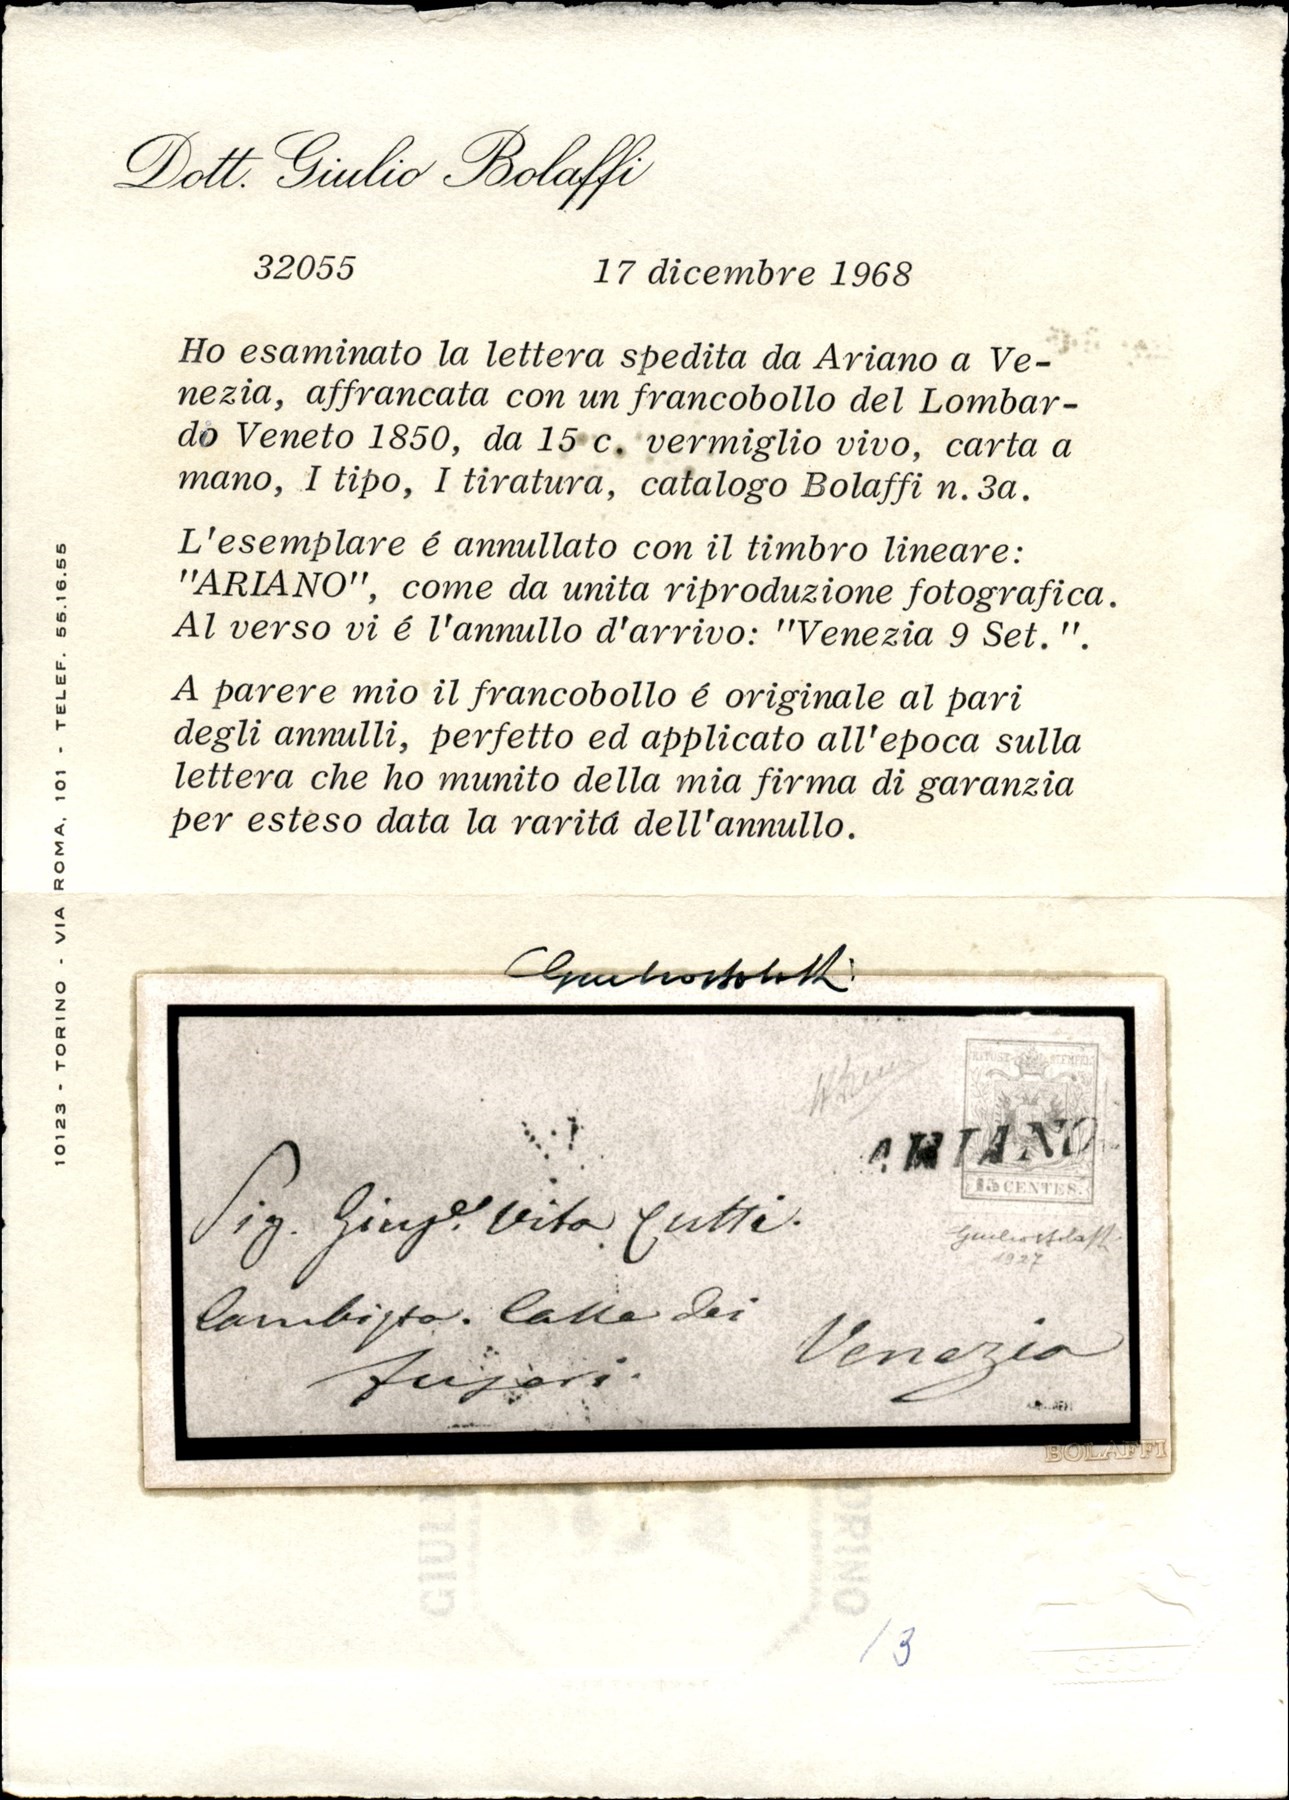 Dott. Giulio Bolaffi
32055 17 dicembre 1968
Ho esaminato la lettera spedita da Ariano a Ve-
nezia, affrancata con un francobollo del Lombar-
do Veneto 1850, da 15 c. vermiglio vivo, carta a
mano, I tipo, I tiratura, catalogo Bolaffi n. 3a.
L'esemplare é annullato con il timbro lineare:
"ARIANO", come da unita riproduzione fotografica.
Al verso vi é l'annullo d'arrivo: "Venezia 9 Set.".
A parere mio il francobollo é originale al pari
degli annulli, perfetto ed applicato all'epoca sulla
lettera che ho munito della mia firma di garanzia
per esteso data la raritá dell'annullo.
10123 - TORINO - VIA ROMA, 101 - TELEF. 55.16.55
Giulio Bolaffi
STEMPEL
ARIANO
15 CENTES.
Giulio Bolaffi
1927
Sig. Giusᵉ. Vita Cutti.
Cambista. Calle dei
Fuseri.
Venezia
BOLAFFI
GIULI
ORINO
/3